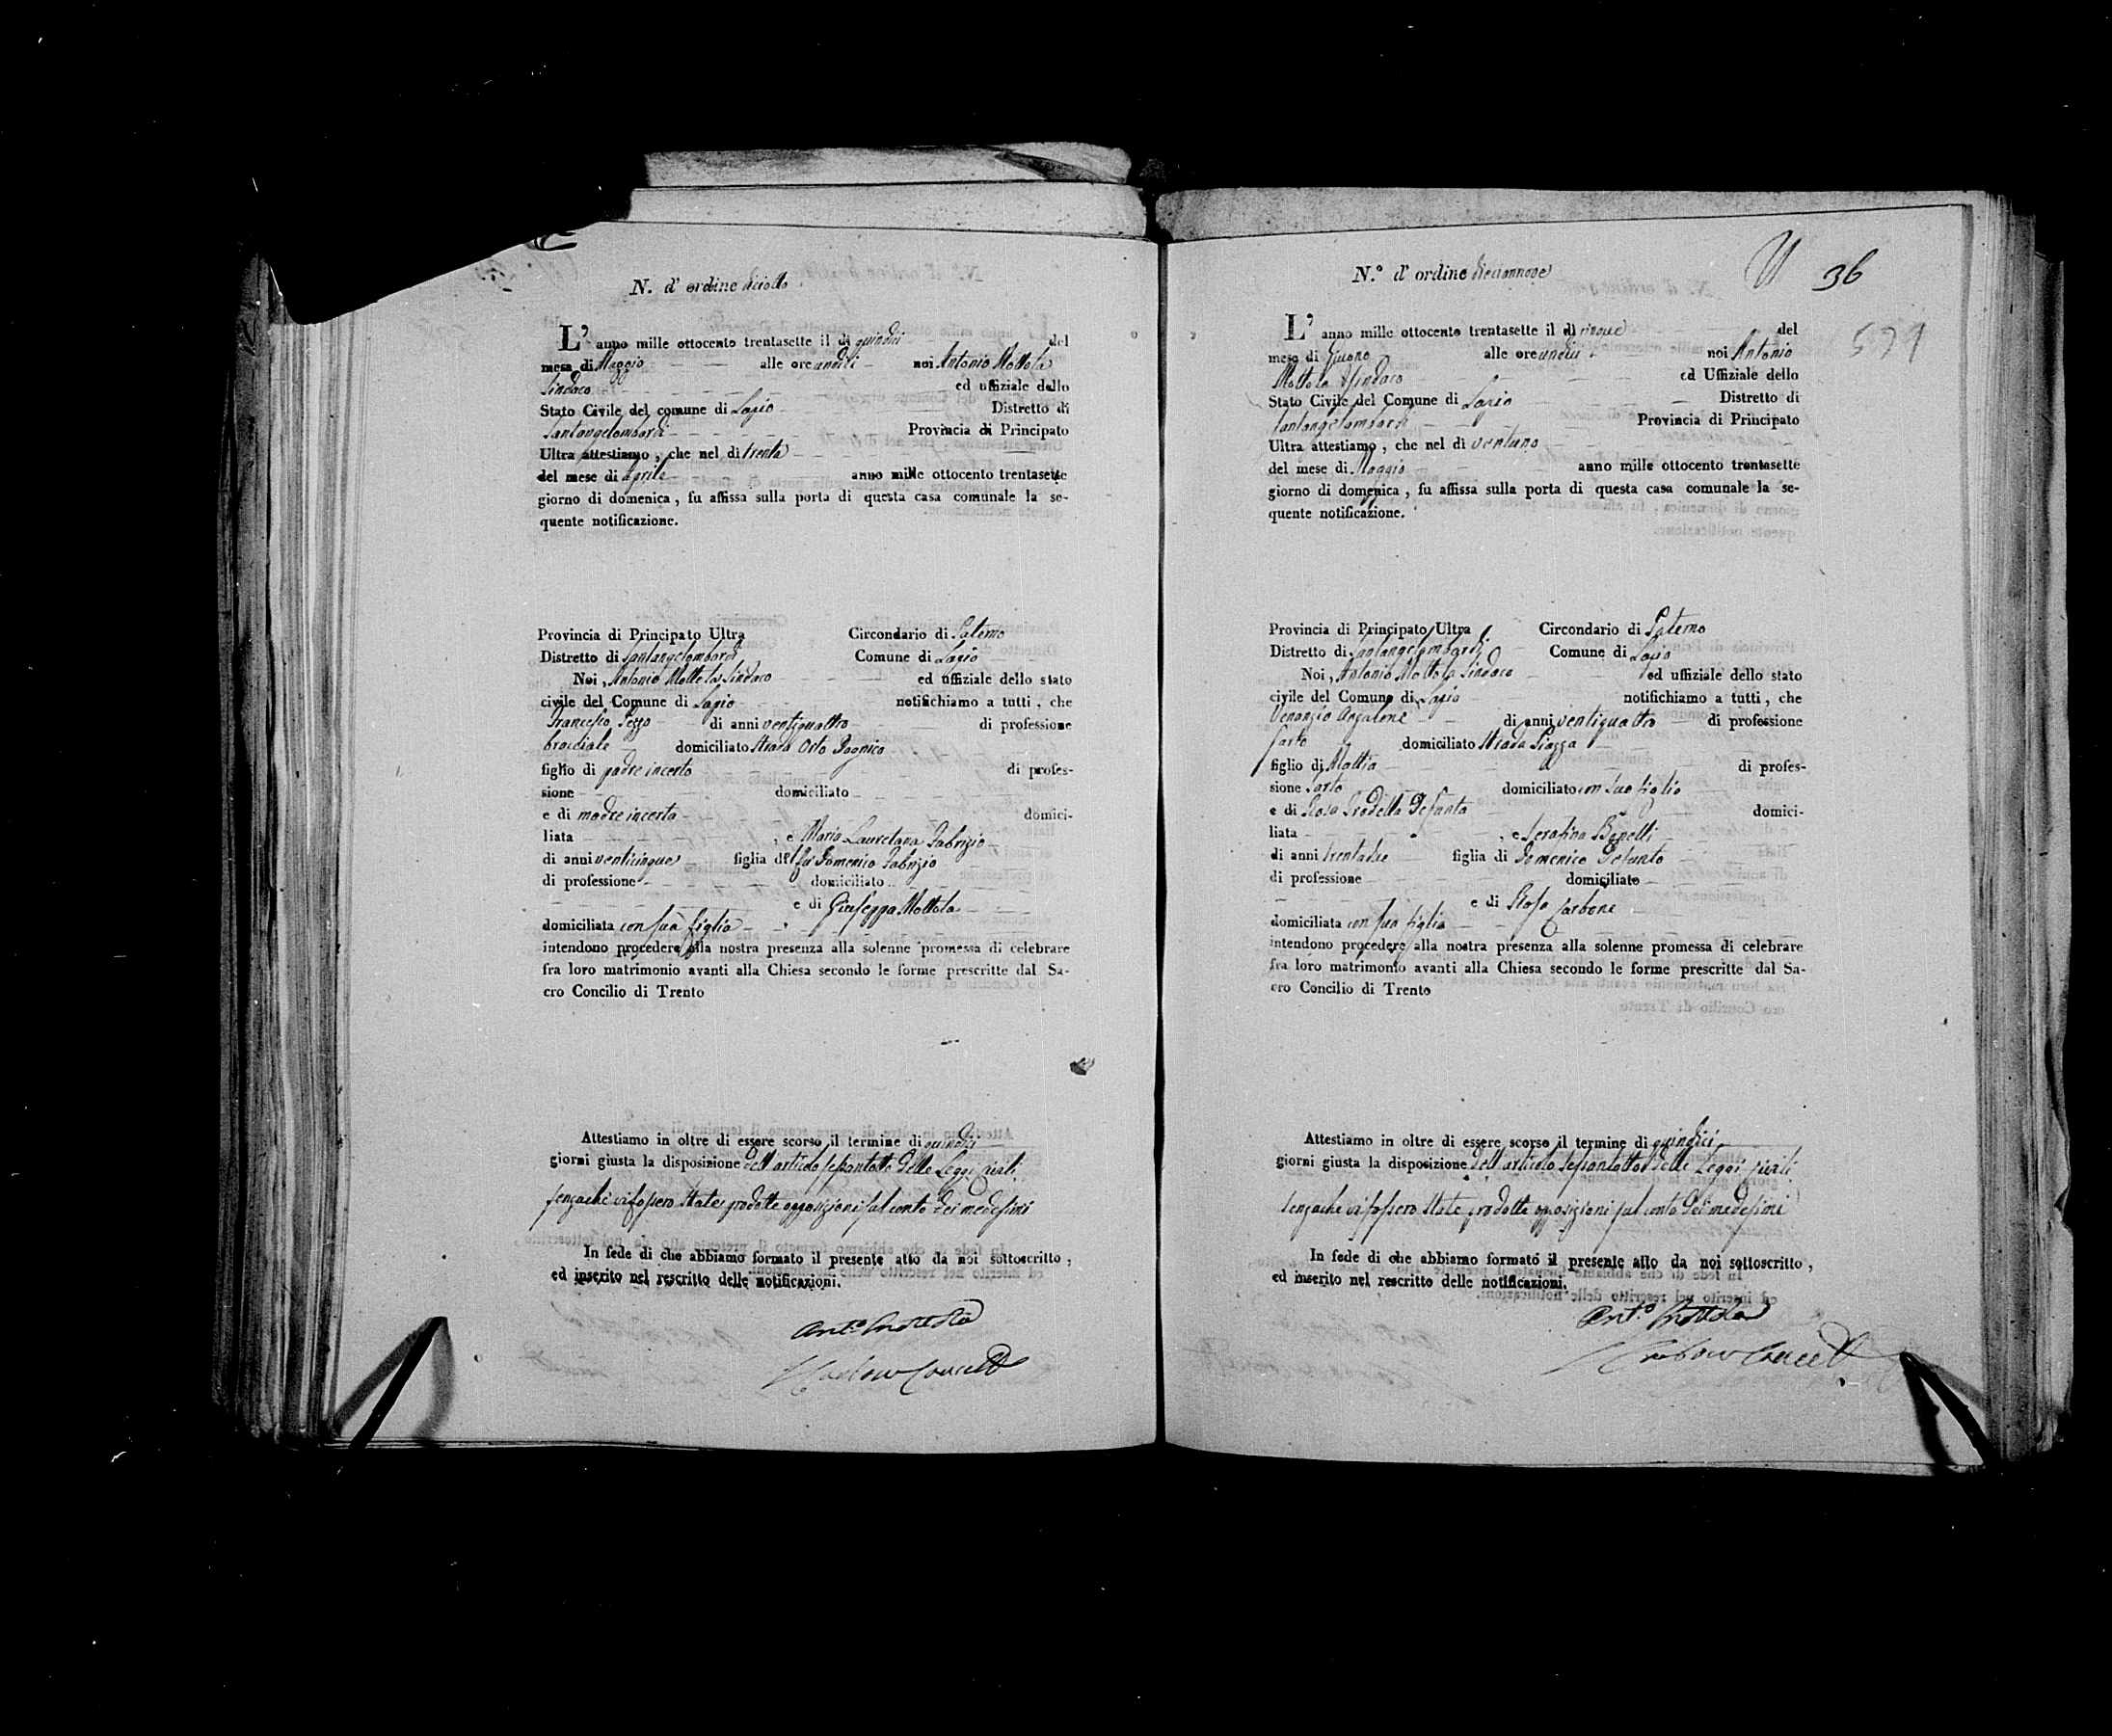 N. d' ordine diciotto
L' anno mille ottocento trentasette il di quindici del
mese di Maggio alle ore undici noi Antonio Mottola
Sindaco ed uffiziale dello
Stato Civile del comune di Lapio Distretto di
Santangelombardi Provincia di Principato
Ultra attestiamo, che nel dì trenta
del mese di Aprile anno mille ottocento trentasette
giorno di domenica, fu affissa sulla porta di questa casa comunale la se-
guente notificazione.
Provincia di Principato Ultra Circondario di Paterno
Distretto di Santangelombardi Comune di Lapio
Noi, Antonio Mottola Sindaco ed uffiziale dello stato
civile del Comune di Lapio notifichiamo a tutti, che
Francesco Pezzo di anni ventiquattro di professione
bracciale domiciliato Strada Orto
figlio di padre incerto di profes-
sione domiciliato
e di madre incerta domici-
liata , e Maria Lauretana Fabrizio
di anni venticinque figlia del fu Domenico Fabrizio
di professione domiciliato
e di Giuseppa Mottola
domiciliata con sua figlia
intendono procedere alla nostra presenza alla solenne promessa di celebrare
fra loro matrimonio avanti alla Chiesa secondo le forme prescritte dal Sa-
cro Concilio di Trento
Attestiamo in oltre di essere scorso il termine di quindici
giorni giusta la disposizione dell'articolo sessantotto delle Leggi civili
senzache vi fossero state prodotte opposizioni sul conto dei medesimi
In fede di che abbiamo formato il presente atto da noi sottoscritto,
ed inserito nel rescritto delle notificazioni.
Ant.o Mottola
N.° d' ordine diciannove
36
571
L' anno mille ottocento trentasette il dì cinque del
mese di Giugno alle ore undici noi Antonio
Mottola Sindaco ed Uffiziale dello
Stato Civile del Comune di Lapio Distretto di
Santangelombardi Provincia di Principato
Ultra attestiamo, che nel dì ventuno
del mese di Maggio anno mille ottocento trentasette
giorno di domenica, fu affissa sulla porta di questa casa comunale la se-
guente notificazione.
Provincia di Principato Ultra Circondario di Paterno
Distretto di Santangelombardi Comune di Lapio
Noi, Antonio Mottola Sindaco ed uffiziale dello stato
civile del Comune di Lapio notifichiamo a tutti, che
Venanzio Anzalone di anni ventiquattro di professione
sarto domiciliato Strada Piazza
figlio di Mattia di profes-
sione sarto domiciliato con suo figlio
e di Rosa Defunta domici-
liata , e Serafina Bonelli
di anni trentadue figlia di Domenico Defunto
di professione domiciliato
e di Rosa Carbone
domiciliata con sua figlia
intendono procedere alla nostra presenza alla solenne promessa di celebrare
fra loro matrimonio avanti alla Chiesa secondo le forme prescritte dal Sa-
cro Concilio di Trento
Attestiamo in oltre di essere scorso il termine di quindici
giorni giusta la disposizione dell'articolo sessantotto delle Leggi civili
senzache vi fossero state prodotte opposizioni sul conto dei medesimi
In fede di che abbiamo formato il presente atto da noi sottoscritto,
ed inserito nel rescritto delle notificazioni.
Ant.o Mottola